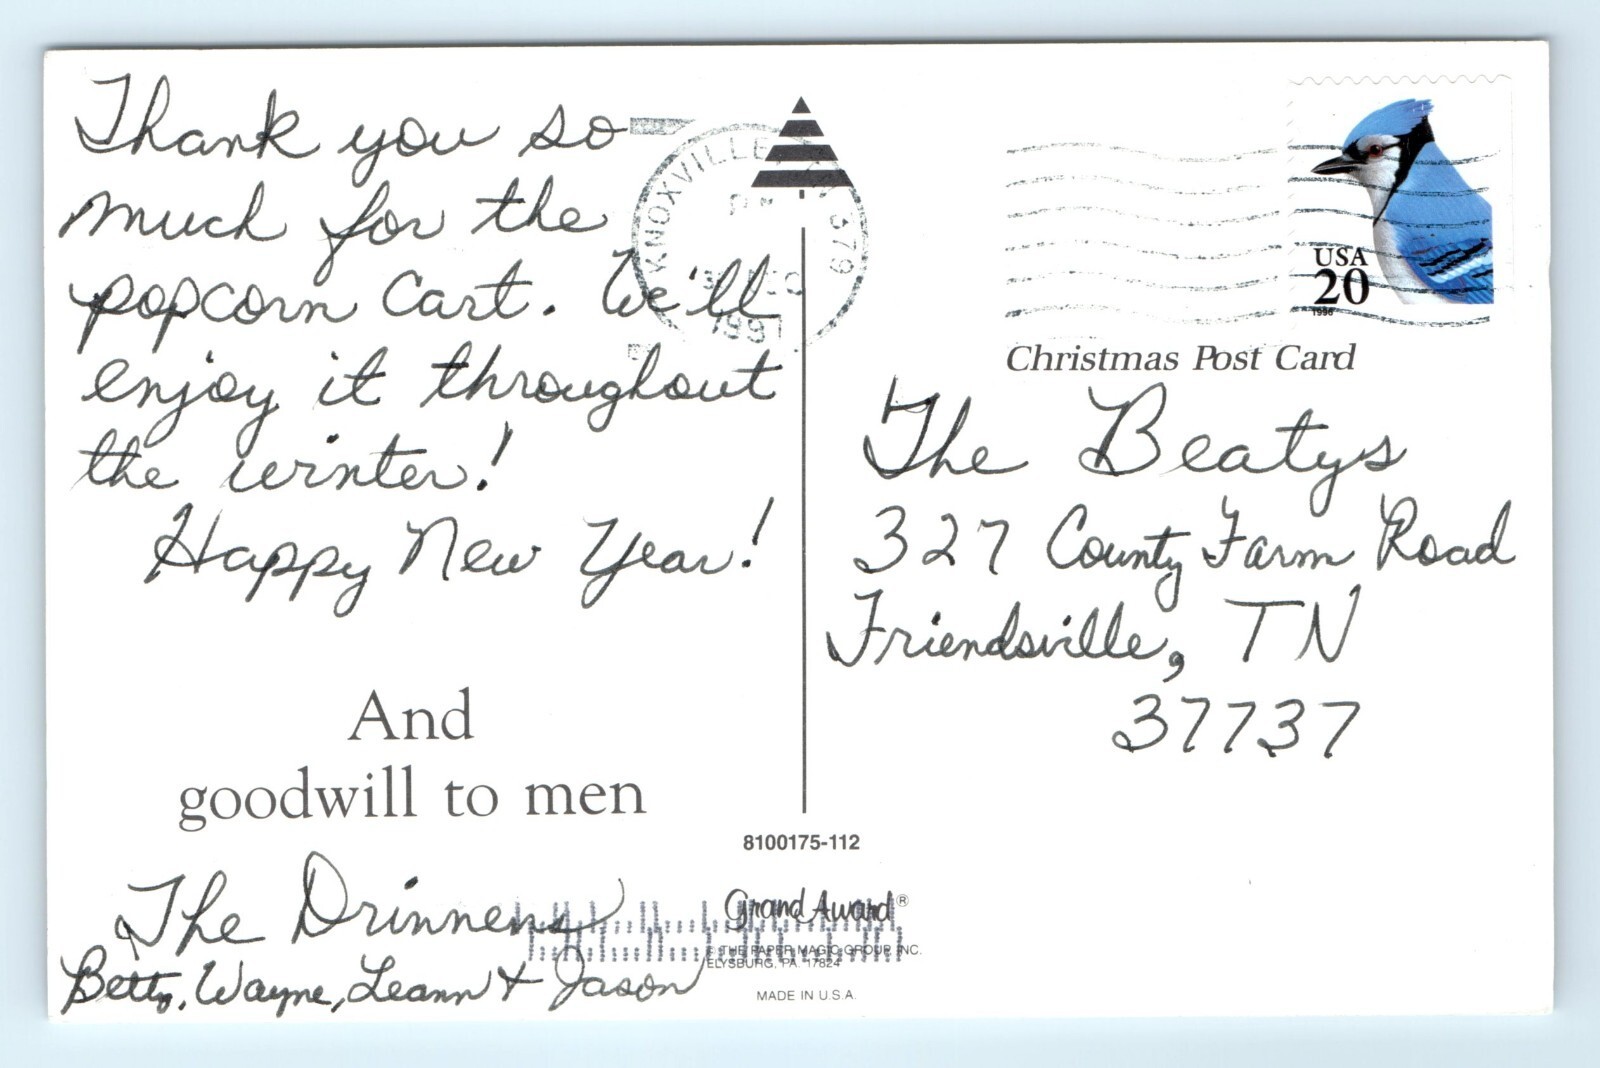 Thank you so
much for the
popcorn cart. We'll
enjoy it throughout
the winter!
Happy New Year!
And
goodwill to men
The Drinnens
Betty, Wayne, Leann & Jason
KNOXVILLE
379
1997
USA
20
1996
Christmas Post Card
The Beatys
327 County Farm Road
Friendsville, TN
37737
8100175-112
Grand Award®
© THE PAPER MAGIC GROUP INC.
ELYSBURG, PA 17824
MADE IN U.S.A.